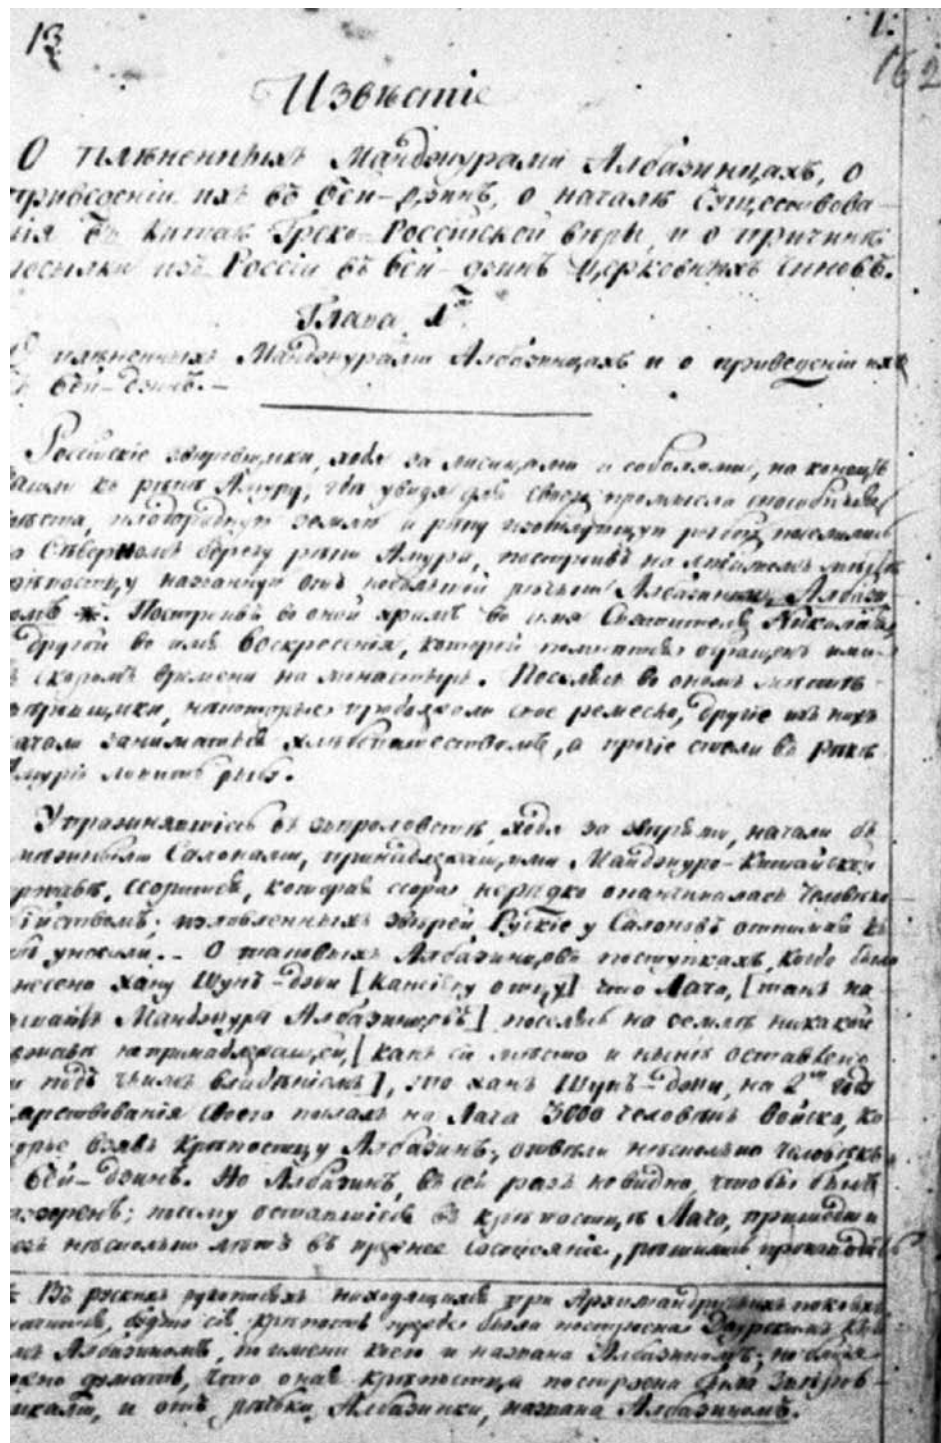 13
1.
162
Извѣстіе
О плѣненныхъ Манджурами Албазинцахъ, о
приведеніи ихъ въ Бей-дзинъ, о началѣ Существова-
нія въ Китаѣ Греко-Россійской вѣры, и о причинѣ
посылки изъ Россіи въ Бей-дзинъ Церковныхъ чиновъ.
Глава 1я
О плѣненныхъ Манджурами Албазинцахъ и о приведеніи ихъ
въ Бей-дзинъ. –
Россійскіе звѣровщики, ходя за лисицами и соболями, на конецъ
дошли къ рѣкѣ Амуру, гдѣ увидя для своего промысла способнѣйшія
мѣста, плодородную землю и рѣку изобилующую рыбою, поселились
на Сѣверномъ берегу рѣки Амура, построивъ на ономъ мѣстѣ
крѣпостцу названную отъ небольшой рѣчки Албазинки, Албази-
номъ *. Построивъ во оной храмъ во имя Святителя Николая,
другой во имя Воскресенія, которой обращенъ
въ скоромъ времени на монастырь. Поселясь во ономъ мѣстѣ
звѣровщики, нѣкоторые продолжали свое ремесло, другіе изъ нихъ
начали заниматься хлѣбопашествомъ, а прочіе стали въ рѣкѣ
Амурѣ ловить рыбу.
Упражнявшіесь въ звѣроловствѣ, ходя за звѣрями, начали съ
Салонами, принадлежащими Манджуро-Китайской
державѣ, ссориться, которая ссора нерѣдко оканчивалась человѣко-
убійствомъ; изловленныхъ звѣрей Рускіе у Салоновъ отнимали къ
себѣ уносили.. О таковыхъ Албазинцовъ поступкахъ, когда было
донесено хану Шунъ-джи [Кансіеву отцу] что Лача, [такъ на-
зываютъ Манджура Албазинцовъ] поселясь на землѣ никакой
державѣ не принадлежащей, [какъ сіе мѣсто и нынѣ оставлено
ни подъ чьимъ владѣніемъ], то ханъ Шунъ-джи, на 2мъ годѣ
царствованія своего послалъ на Лача 3000 человѣкъ войска, ко-
торые взявъ крѣпостцу Албазинъ, отвели нѣсколько человѣкъ
въ Бей-дзинъ. Но Албазинъ, въ сей разъ не видно, чтобы былъ
разоренъ; посему оставшіеся въ крѣпостцѣ Лача, пришедши
чрезъ нѣсколько лѣтъ въ прежнее состояніе, рѣшились
* Въ рускихъ рукописяхъ находящихся при Архимандричьихъ покояхъ,
значится, будто сія крѣпость прежде была построена Даурскимъ Кня-
земъ Албазиномъ, по имени коего и названа Албазиномъ; но болѣе
можно думать, что оная крѣпостца построена была звѣров-
щиками, и отъ рѣчки Албазинки, названа Албазиномъ.